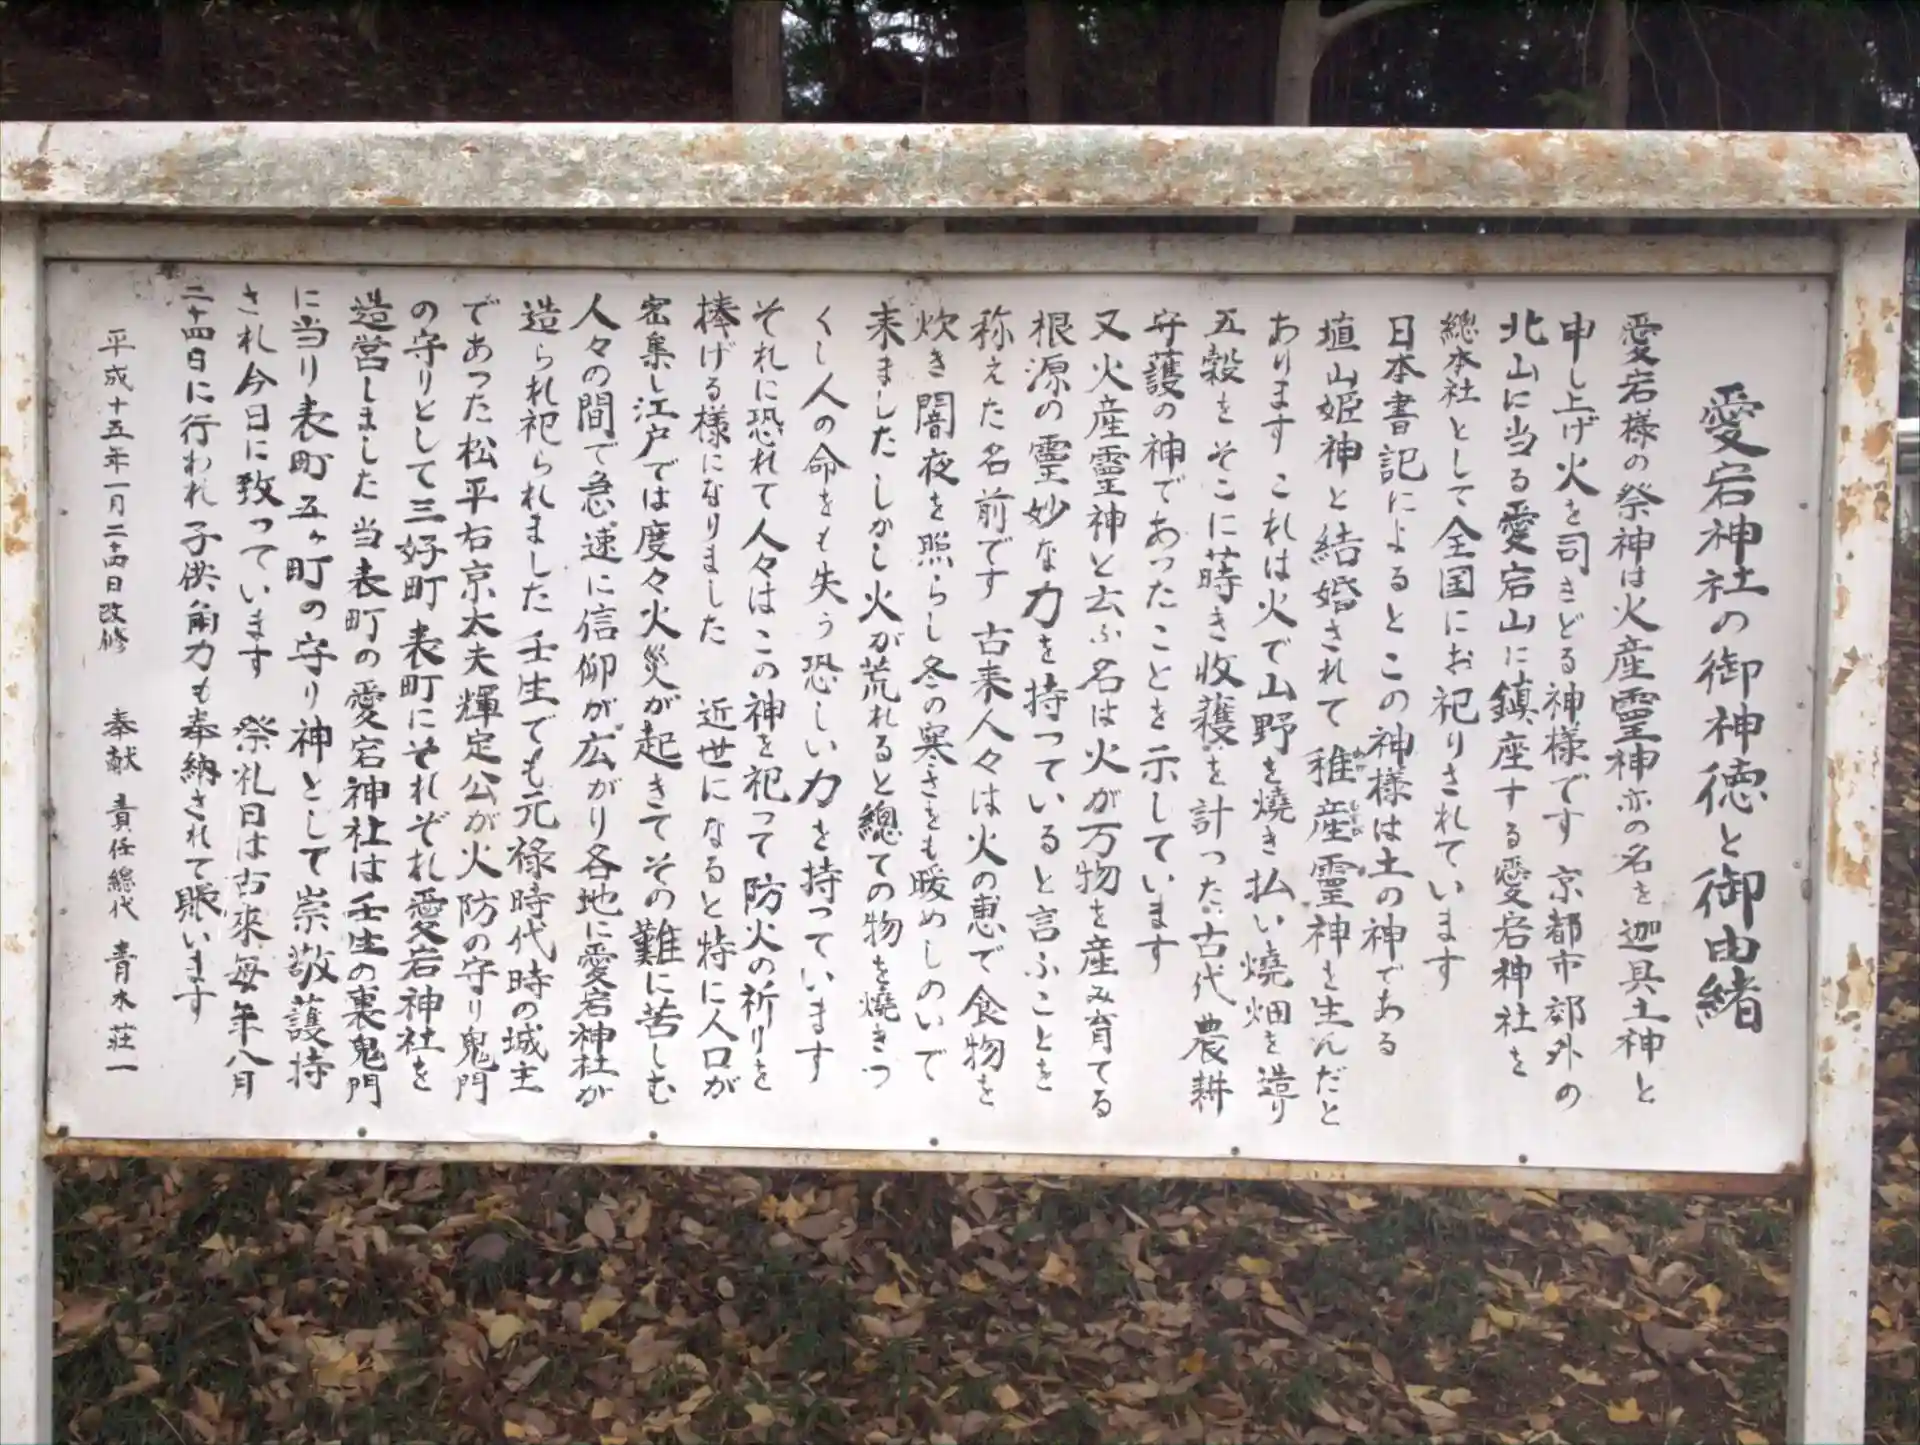 愛宕神社の御神徳と御由緒
愛宕様の祭神は火産霊神亦の名を迦具土神と
申し上げ火を司さどる神様です 京都市郊外の
北山に当る愛宕山に鎮座する愛宕神社を
總本社として全国にお祀りされています
日本書記によるとこの神様は土の神である
埴山姫神と結婚されて稚産霊神を生んだと
あります これは火で山野を燒き払い燒畑を造り
五穀をそこに蒔き收獲を計った古代農耕
守護の神であったことを示しています
又火産霊神と云ふ名は火が万物を産み育てる
根源の霊妙な力を持っていると言ふことを
称えた名前です 古来人々は火の恵で食物を
炊き闇夜を照らし冬の寒さをも暖めしのいで
来ました しかし火が荒れると總ての物を燒きつ
くし人の命をも失う恐しい力を持っています
それに恐れて人々はこの神を祀って防火の祈りを
捧げる様になりました 近世になると特に人口が
密集し江戸では度々火災が起きてその難に苦しむ
人々の間で急速に信仰が広がり各地に愛宕神社が
造られ祀られました 壬生でも元祿時代時の城主
であった松平右京太夫輝定公が火防の守り鬼門
の守りとして三好町 表町にそれぞれ愛宕神社を
造営しました 当表町の愛宕神社は壬生の裏鬼門
に当り表町五ヶ町の守り神として崇敬護持
され今日に致っています 祭礼日は古來毎年八月
二十四日に行われ子供角力も奉納されて賑います
平成十五年一月二十四日改修 奉献 責任總代 青木荘一